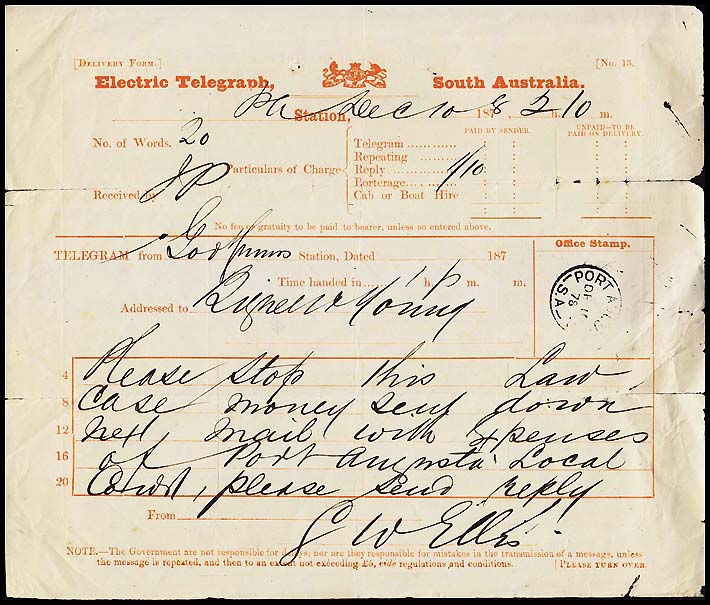 [DELIVERY FORM.] [No. 13.
Electric Telegraph, South Australia.
Station, Dec 10 1878, 2 h. 10 m.
No. of Words, 20
PAID BY SENDER. UNPAID—TO BE PAID ON DELIVERY.
Particulars of Charge
Telegram
Repeating
Reply 1/10
Porterage
Cab or Boat Hire
Received by JP
No fee or gratuity to be paid to bearer, unless so entered above.
TELEGRAM from Station, Dated 187
Office Stamp.
Time handed in 1 h. p m. m.
Addressed to Young
PORT A
S.A
78
4 Please stop this Law
8 case money sent down
12 next mail with expenses
16 of Port Augusta Local
20 Court, please send reply
From G W Ellis
NOTE.—The Government are not responsible for delays, nor are they responsible for mistakes in the transmission of a message, unless
the message is repeated, and then to an extent not exceeding £5, vide regulations and conditions. [PLEASE TURN OVER.